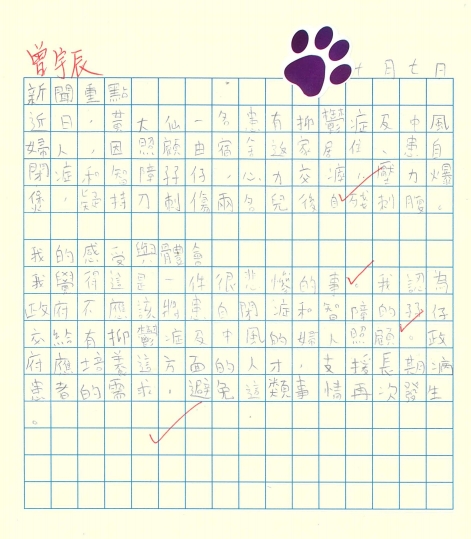 曾宇辰
十月七日
新聞重點
近日，黃大仙一名患有抑鬱症及中風
婦人，因照顧由宿舍返家居住、患自
閉症和智障孖仔，心力交瘁，壓力爆
煲，疑持刀刺傷兩名兒後自殘刺腹。
我的感受與體會
我覺得這是一件很悲慘的事，我認為
政府不應該將患自閉症和智障的孖仔
交給有抑鬱症及中風的婦人照顧。政
府應培養這方面的人才，支援長期病
患者的需求，避免這類事情再次發生
。